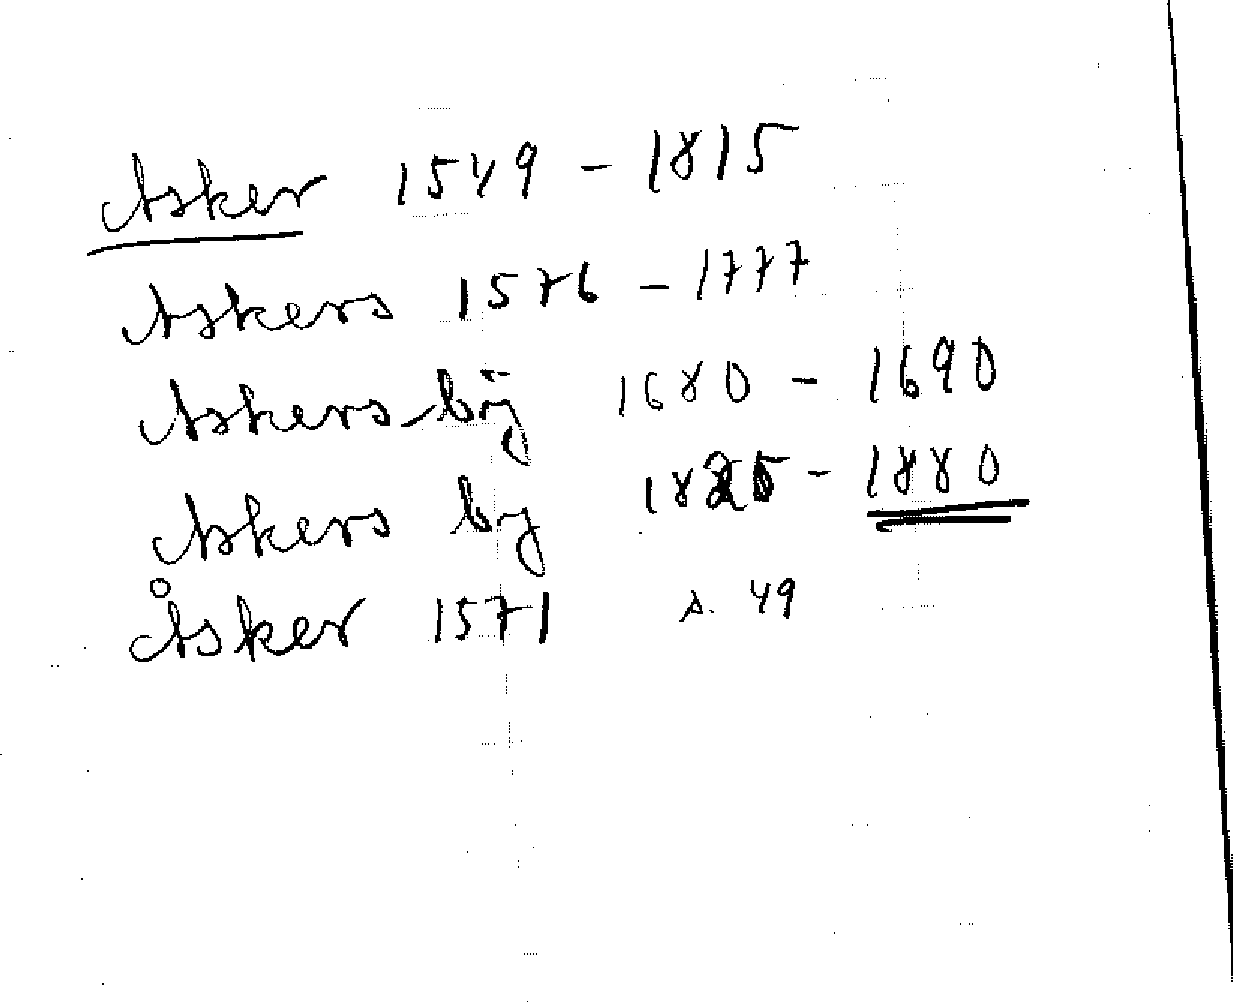 Asker 1549 - 1815
Askers 1576 - 1777
Askers-bÿ 1680 - 1690
Askers by 1825 - 1880
Åsker 1571 s. 49